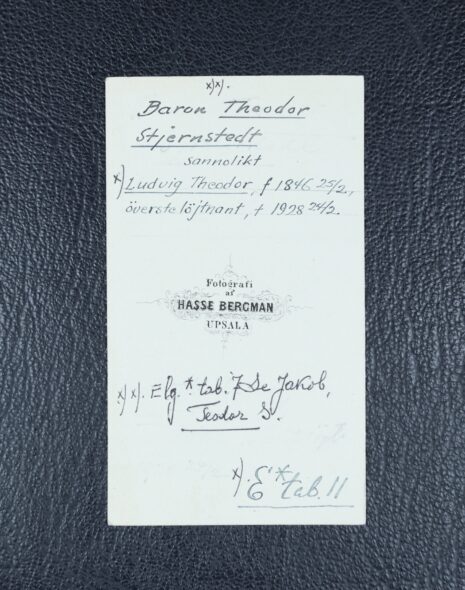 x)x).
Baron Theodor
Stjernstedt
sannolikt
x) Ludvig Theodor, f 1846 25/2,
överstelöjtnant, † 1928 24/2.
Fotografi
af
HASSE BERGMAN
UPSALA
x)x). Elg.* tab. 7 Se Jakob,
Teodor S.
x). E* tab. 11